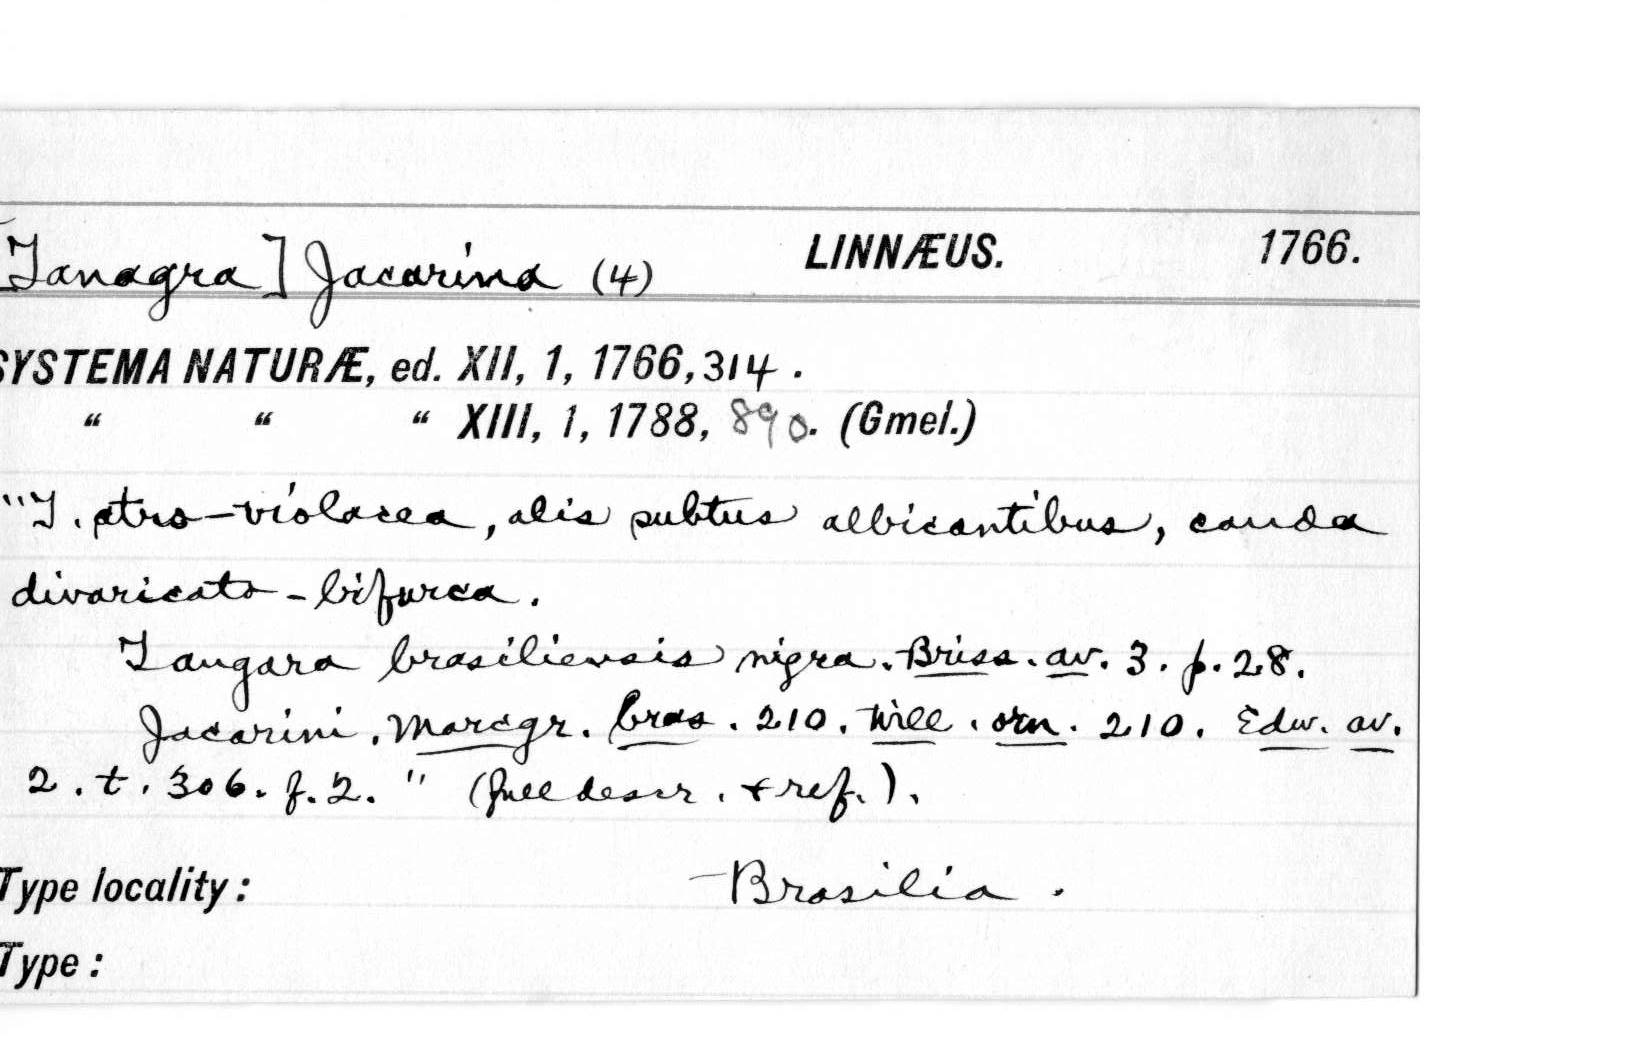 [Tanagra] Jacarina (4) LINNÆUS. 1766.
SYSTEMA NATURÆ, ed. XII, 1, 1766, 314.
“ “ “ XIII, 1, 1788, 890. (Gmel.)
"T. atro-violacea, alis subtus albicantibus, cauda
divaricato-bifurca.
Tangara brasiliensis nigra. Briss. av. 3. p. 28.
Jacarini. Marcgr. bras. 210. Will. orn. 210. Edw. av.
2. t. 306. f. 2." (full descr. + ref.).
Type locality: Brasilia.
Type: